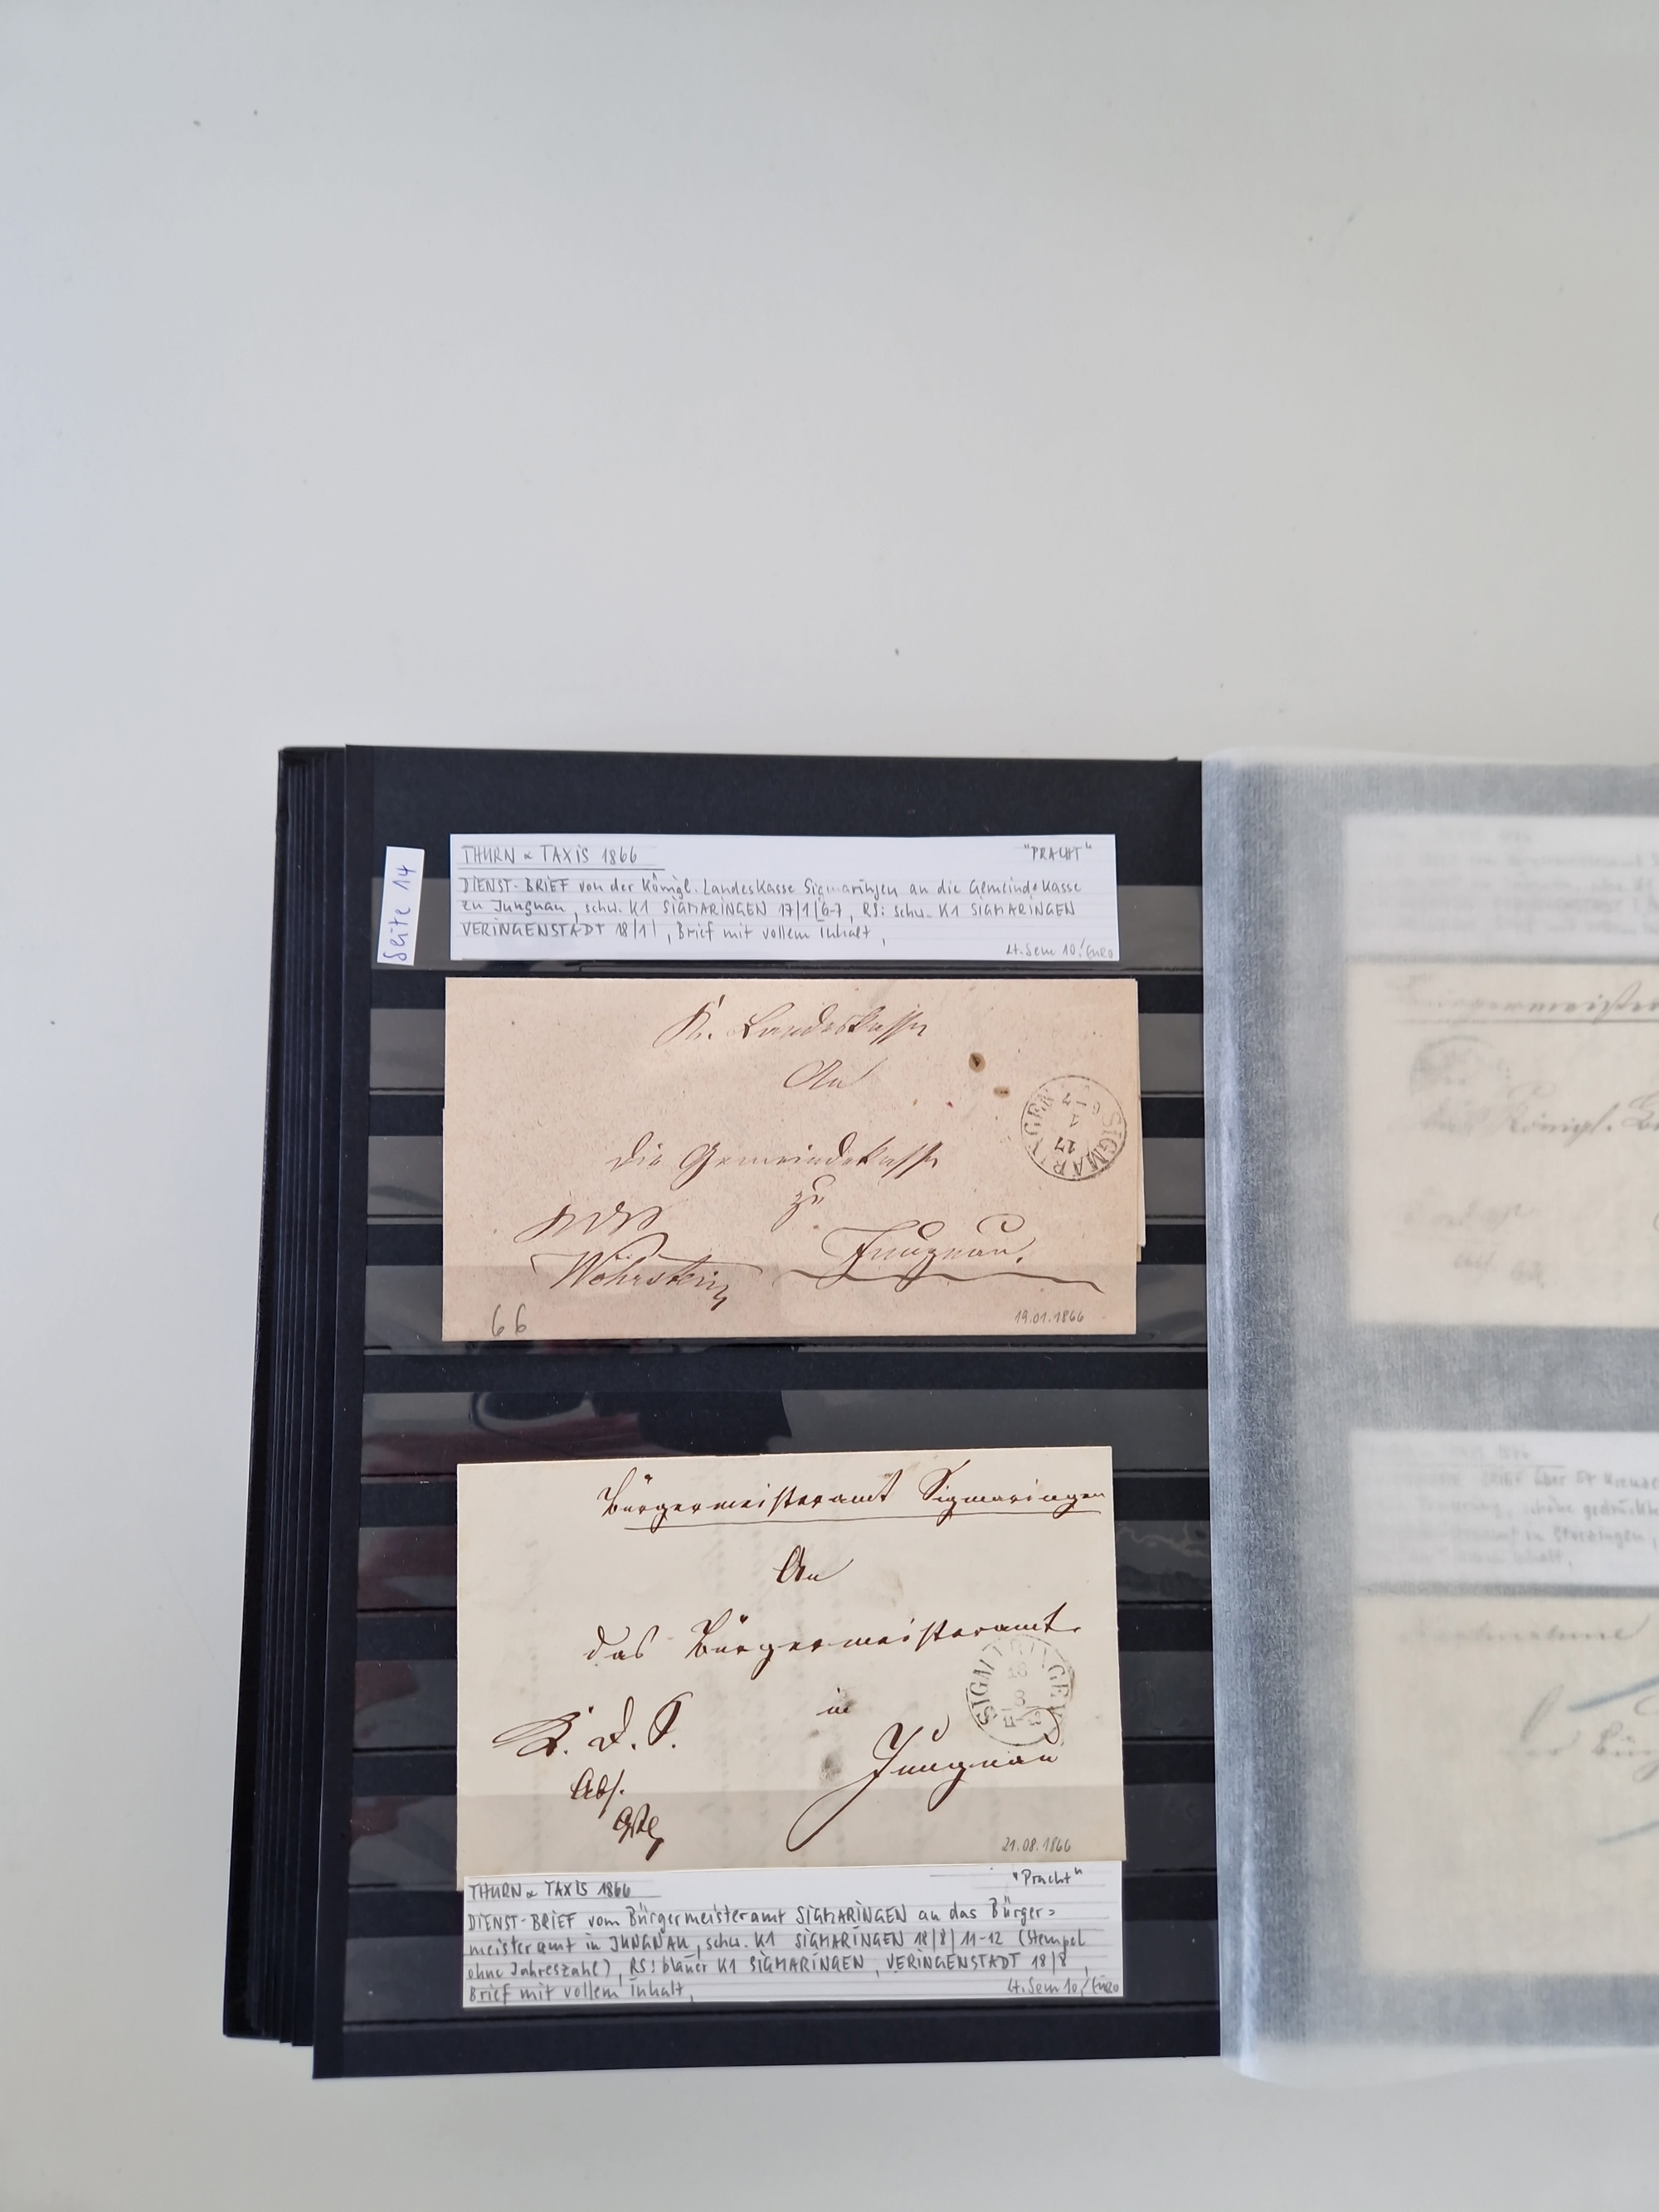 Seite 14
THURN & TAXIS 1866 "PRACHT"
DIENST-BRIEF von der Königl. Landeskasse Sigmaringen an die Gemeindekasse
zu Jungnau, schw. K1 SIGMARINGEN 17/1/6-7, RS: schw. K1 SIGMARINGEN
VERINGENSTADT 18/1/, Brief mit vollem Inhalt,
Lt. Sem 10,- Euro
K. Landeskasse
An
die Gemeindekasse
zu
Jungnau.
Wohrstein
SIGMARINGEN
17
1
66
19.01.1866
Bürgermeisteramt Sigmaringen
An
das Bürgermeisteramt
in
Jungnau
K. D. S.
Abs.
SIGMARINGEN
18
8
11-12
21.08.1866
"Pracht"
THURN & TAXIS 1866
DIENST-BRIEF vom Bürgermeisteramt SIGMARINGEN an das Bürger=
meisteramt in JUNGNAU, schw. K1 SIGMARINGEN 18/8/11-12 (Stempel
ohne Jahreszahl), RS: blauer K1 SIGMARINGEN, VERINGENSTADT 18/8,
Brief mit vollem Inhalt, Lt. Sem 10,- Euro